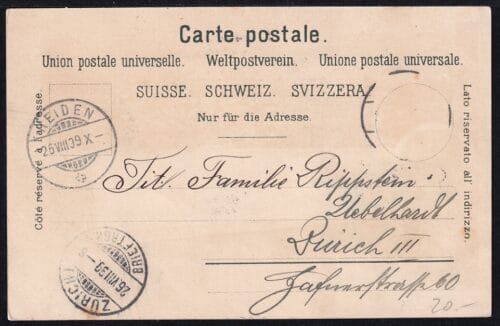 Carte postale.
Union postale universelle. Weltpostverein. Unione postale universale.
SUISSE. SCHWEIZ. SVIZZERA.
Nur für die Adresse.
Côté réservé à l'adresse.
Lato riservato all' indirizzo.
HEIDEN
26.VIII.99.X–
Tit. Familie Rippstein
Uebelhardt
Zürich III
Hafnerstrasse 60
ZÜRICH
26.VIII.99.–8
BRIEFTRÄGER
20.–